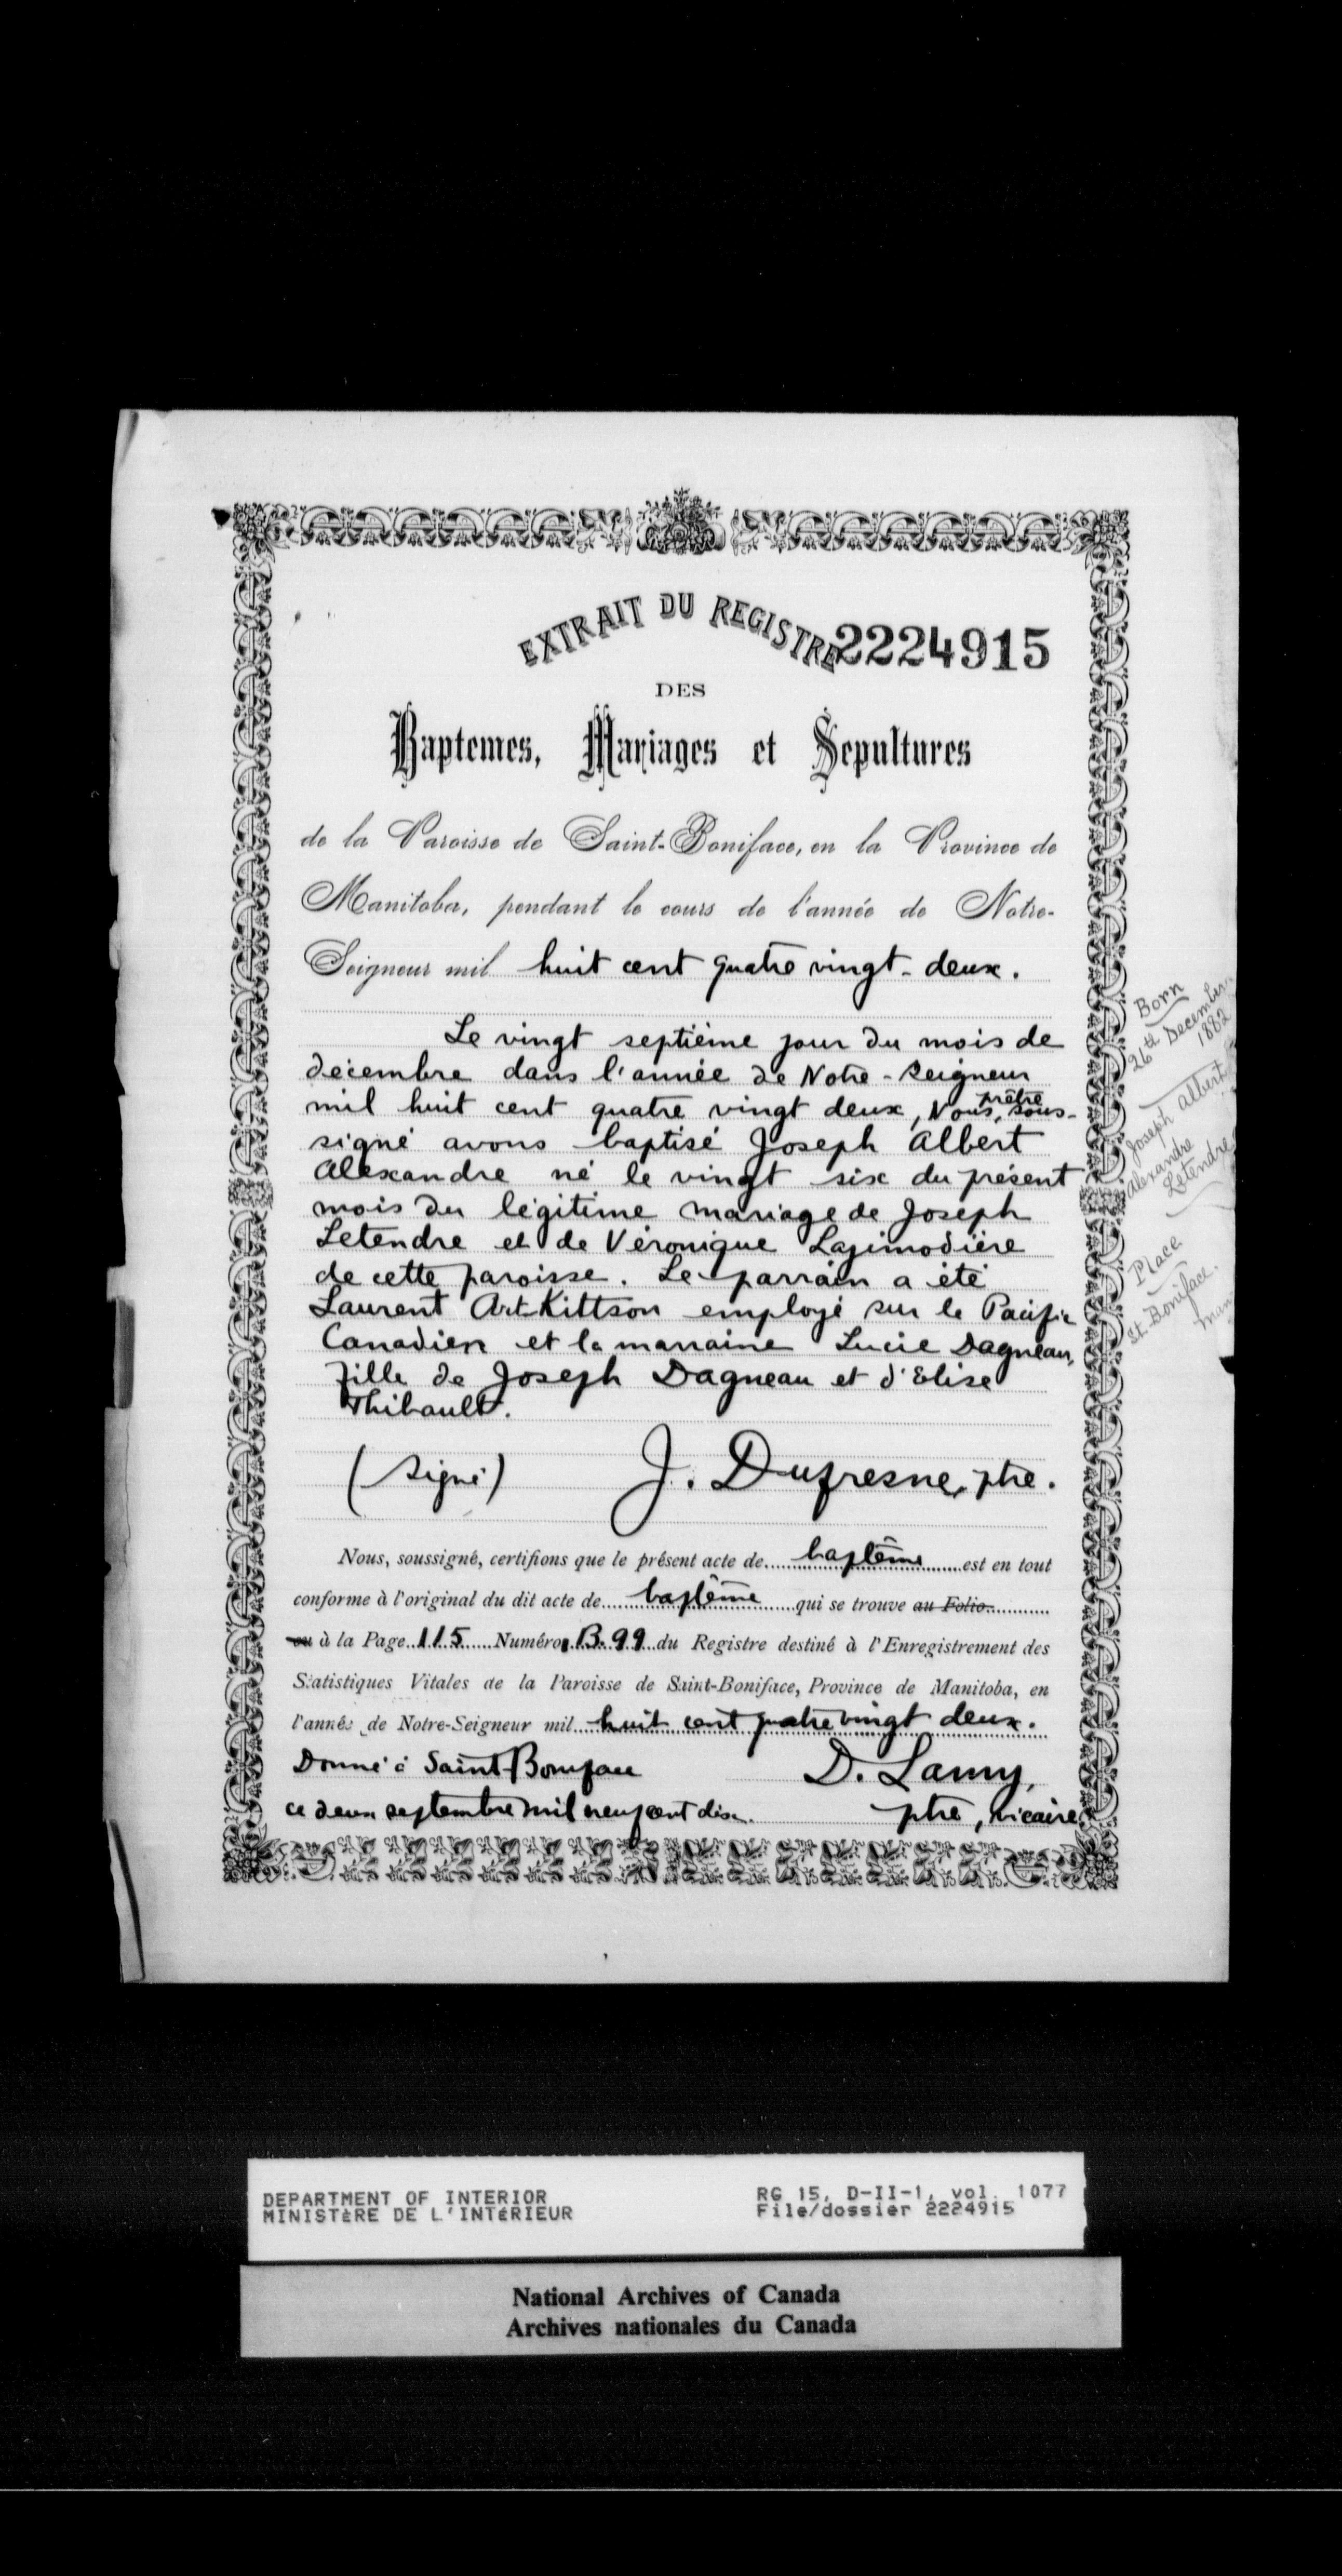 EXTRAIT DU REGISTRE 2224915
DES
Baptemes, Mariages et Sepultures
de la Paroisse de Saint-Boniface, en la Province de
Manitoba, pendant le cours de l'année de Notre-
Seigneur mil huit cent quatre vingt-deux.
Le vingt septième jour du mois de
décembre dans l'année de Notre-Seigneur
mil huit cent quatre vingt deux, Nous, prêtre sous-
signé avons baptisé Joseph Albert
Alexandre né le vingt six du présent
mois du légitime mariage de Joseph
Letendre et de Véronique Lajimodière
de cette paroisse. Le parrain a été
Laurent Art-Kittson employé sur le Pacific
Canadien et la marraine Lucie Dagneau,
fille de Joseph Dagneau et d'Elise
Thibault.
(Signé) J. Dufresne, ptre.
Nous, soussigné, certifions que le présent acte de baptême est en tout
conforme à l'original du dit acte de baptême qui se trouve au Folio
ou à la Page 115 Numéro B.99 du Registre destiné à l'Enregistrement des
Statistiques Vitales de la Paroisse de Saint-Boniface, Province de Manitoba, en
l'année de Notre-Seigneur mil huit cent quatre vingt deux.
Donné à Saint-Boniface D. Lamy,
ce deux septembre mil neuf cent dix. ptre, vicaire
Born
26th December
1882
Joseph Albert
Alexandre
Letendre
Place
St-Boniface.
Man
DEPARTMENT OF INTERIOR RG 15, D-II-1, vol. 1077
MINISTÈRE DE L'INTÉRIEUR File/dossier 2224915
National Archives of Canada
Archives nationales du Canada